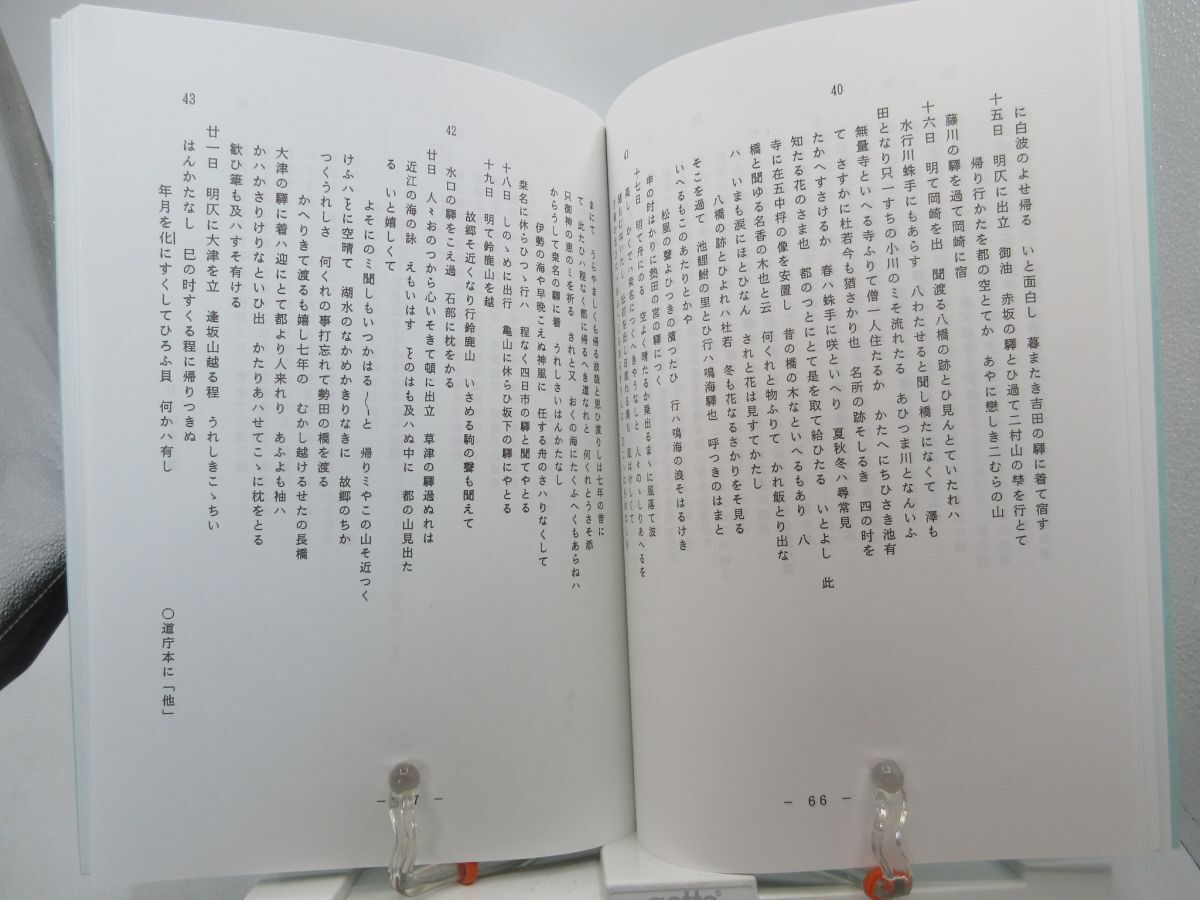 40
に白波のよせ帰る　いと面白し　暮またき吉田の驛に着て宿す
十五日　明仄に出立　御油　赤坂の驛とひ過て二村山の埜を行とて
帰り行かたを都の空とてか　あやに戀しき二むらの山
藤川の驛を過て岡崎に宿
十六日　明て岡崎を出　聞渡る八橋の跡とひ見んとていたれハ
水行川蛛手にもあらす　八わたせると聞し橋たになくて　澤も
田となり只一すちの小川のミそ流れたる　あひつま川となんいふ
無量寺といへる寺ふりて僧一人住たるか　かたへにちひさき池有
て　さすかに杜若今も猶さかり也　名所の跡そしるき　四の時を
たかへすさけるか　春ハ蛛手に咲といへり　夏秋冬ハ尋常見
知たる花のさま也　都のつとにとて是を取て給ひたる　いとよし　此
寺に在五中将の像を安置し　昔の橋の木なといへるもあり　八
橋と聞ゆる名香の木也と云　何くれと物ふりて　かれ飯とり出な
ハ　いまも涙にほとひなん　されと花は見すてかたし
八橋の跡とひよれハ杜若　冬も花なるさかりをそ見る
そこを過て　池鯉鮒の里とひ行ハ鳴海驛也　呼つきのはまと
いへるもこのあたりとかや
松風の聲よひつきの濱つたひ　行ハ鳴海の浪そはるけき
申の時はかりに熱田の宮の驛につく
41
十七日　明て舟にのる　空よく晴たるか乗出るまゝに風落て波
高し　かくてハ桑名につくへきやうなしと　人々のゝしりあへるを
− 66 −
まにて　うらやましくも帰る波哉と思ひ渡りしは七年の昔に
て　此たひハ程なく都に帰るへき道なれと　何くれとうさそ添
只御神の恵のミを祈る　されと又　おくの海にたくふへくもあらねハ
からうして桑名の驛に着　うれしさいはんかたなし
伊勢の海や早晩こえぬ神風に　任する舟のさハりなくして
桑名に休らひつゝ行ハ　程なく四日市の驛と聞てやとる
十八日　しのゝめに出行　亀山に休らひ坂下の驛にやとる
十九日　明て鈴鹿山を越
故郷そ近くなり行鈴鹿山　いさめる駒の聲も聞えて
42
水口の驛をこえ過　石部に枕をかる
廿日　人々おのつから心いそきて頓に出立　草津の驛過ぬれは
近江の海の詠　えもいはす　ことのはも及ハぬ中に　都の山見出た
る　いと嬉しくて
よそにのミ聞しもいつかはる〱と　帰りミやこの山そ近つく
けふハことに空晴て　湖水のなかめかきりなきに　故郷のちか
つくうれしさ　何くれの事打忘れて勢田の橋を渡る
かへりきて渡るも嬉し七年の　むかし越けるせたの長橋
大津の驛に着ハ迎にとて都より人来れり　あふよも袖ハ
かハかさりけりなといひ出　かたりあハせてこゝに枕をとる
歓ひ筆も及ハすそ有ける
廿一日　明仄に大津を立　逢坂山越る程　うれしきこゝちい
43
はんかたなし　巳の時すくる程に帰りつきぬ
年月を化にすくしてひろふ貝　何かハ有し
○道庁本に「他」